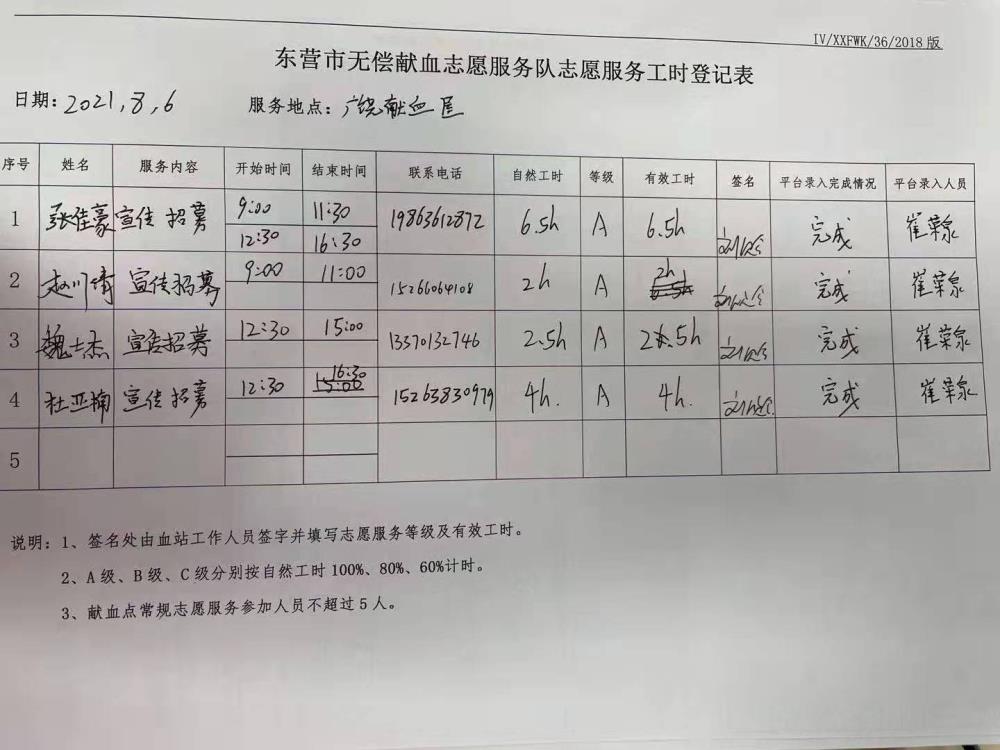 IV/XXFWK/36/2018 版
东营市无偿献血志愿服务队志愿服务工时登记表
日期: 2021,8,6 服务地点: 广饶献血屋
序号 姓名 服务内容 开始时间 结束时间 联系电话 自然工时 等级 有效工时 签名 平台录入完成情况 平台录入人员
1 张佳豪 宣传 招募 9:00 11:30 19863612872 6.5h A 6.5h 完成 崔荣泉
12:30 16:30
2 赵川倩 宣传招募 9:00 11:00 15266064108 2h A 2h 完成 崔荣泉
3 魏士杰 宣传招募 12:30 15:00 13370132746 2.5h A 2.5h 完成 崔荣泉
4 杜亚楠 宣传招募 12:30 16:30 15263830979 4h. A 4h. 完成 崔荣泉
5
说明: 1、签名处由血站工作人员签字并填写志愿服务等级及有效工时。
2、A 级、B 级、C 级分别按自然工时 100%、80%、60%计时。
3、献血点常规志愿服务参加人员不超过 5 人。